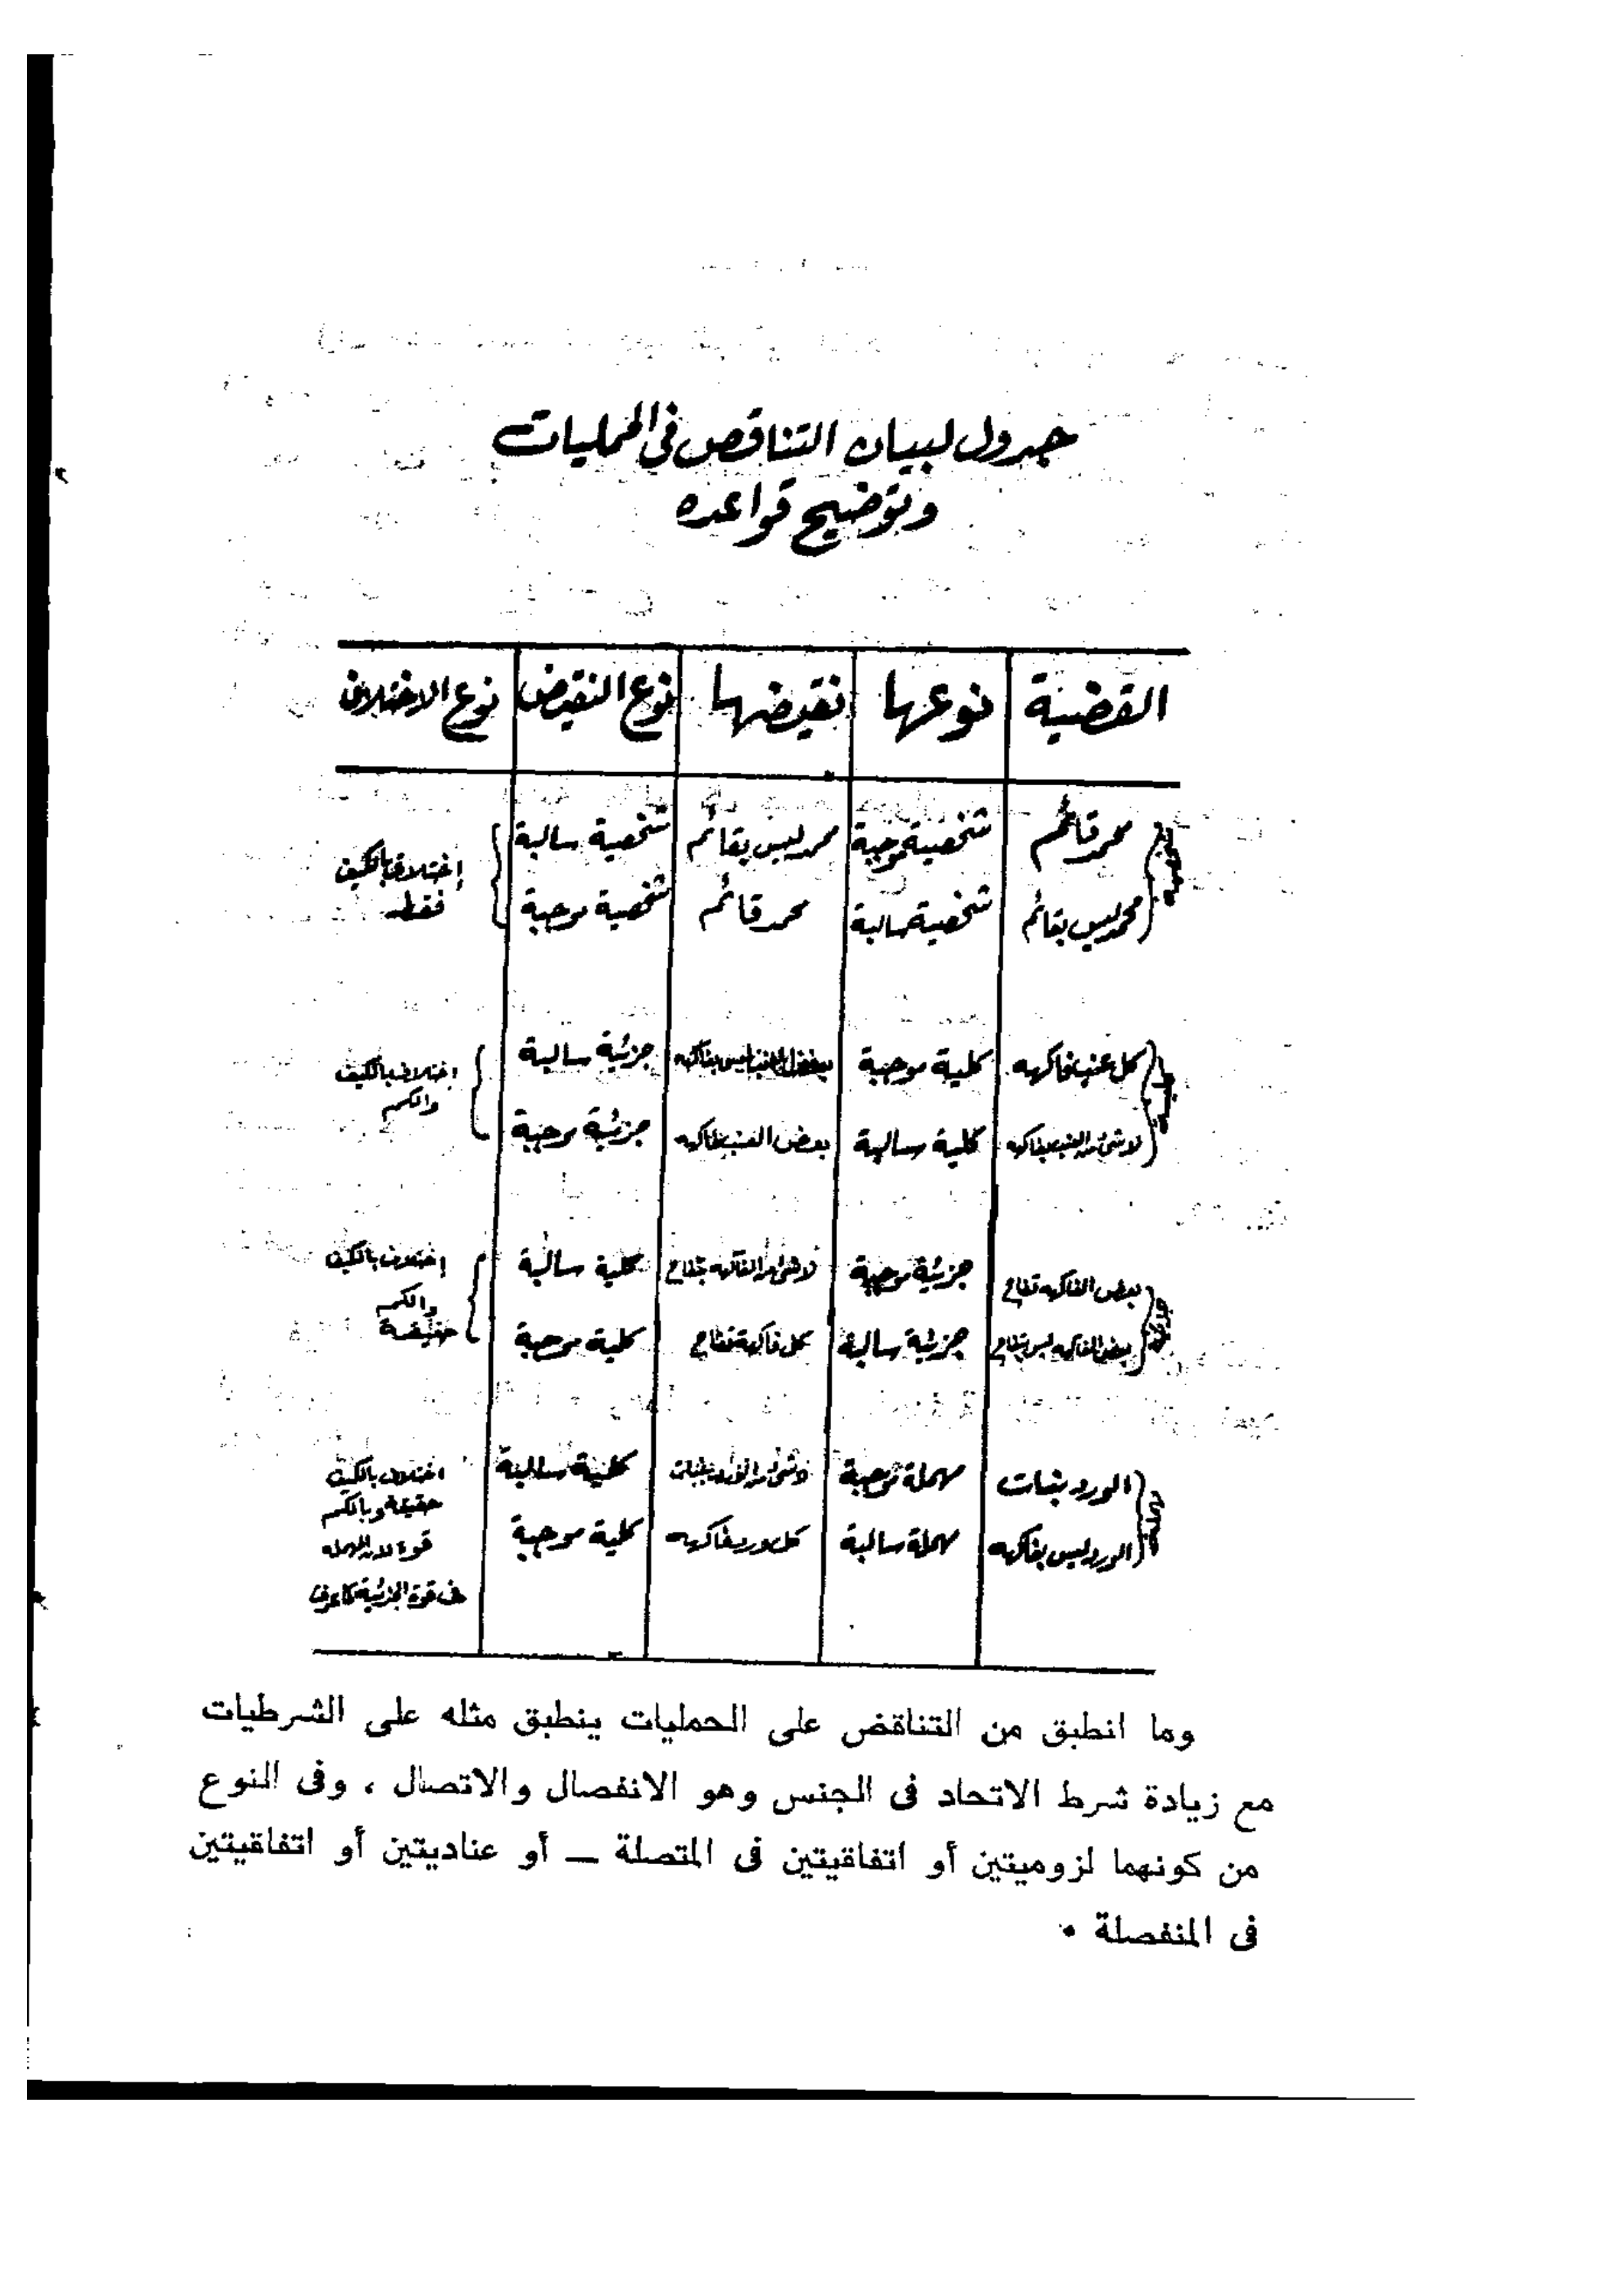 جدول لبيان التناقض في الحمليات
وتوضيح قواعده
القضية نوعها نقيضها نوع النقيض نوع الاختلاف
محمد قائم شخصية موجبة محمد ليس بقائم شخصية سالبة إختلاف بالكيف
محمد ليس بقائم شخصية سالبة محمد قائم شخصية موجبة فقط
كل عنب فاكهه كلية موجبة بعض العنب ليس بفاكهه جزئية سالبة إختلاف بالكيف
والكم
لا شئ من العنب بفاكهه كلية سالبة بعض العنب فاكهه جزئية موجبة
بعض الفاكهه تفاح جزئية موجبة لا شئ من الفاكهه بتفاح كلية سالبة إختلاف بالكيف
والكم
بعض الفاكهه ليس بتفاح جزئية سالبة كل فاكهة تفاح كلية موجبة حقيقة
مهملة
الورد نبات مهملة موجبة لا شئ من الورد بنبات كلية سالبة اختلاف بالكيف
حقيقة وبالكم
الورد ليس بفاكهه مهملة سالبة كل ورد فاكهه كلية موجبة قوة لأن المهملة
فى قوة الجزئية كما عرف
وما انطبق من التناقض على الحمليات ينطبق مثله على الشرطيات
مع زيادة شرط الاتحاد فى الجنس وهو الانفصال والاتصال ، وفى النوع
من كونهما لزوميتين أو اتفاقيتين فى المتصلة — أو عناديتين أو اتفاقيتين
فى المنفصلة •